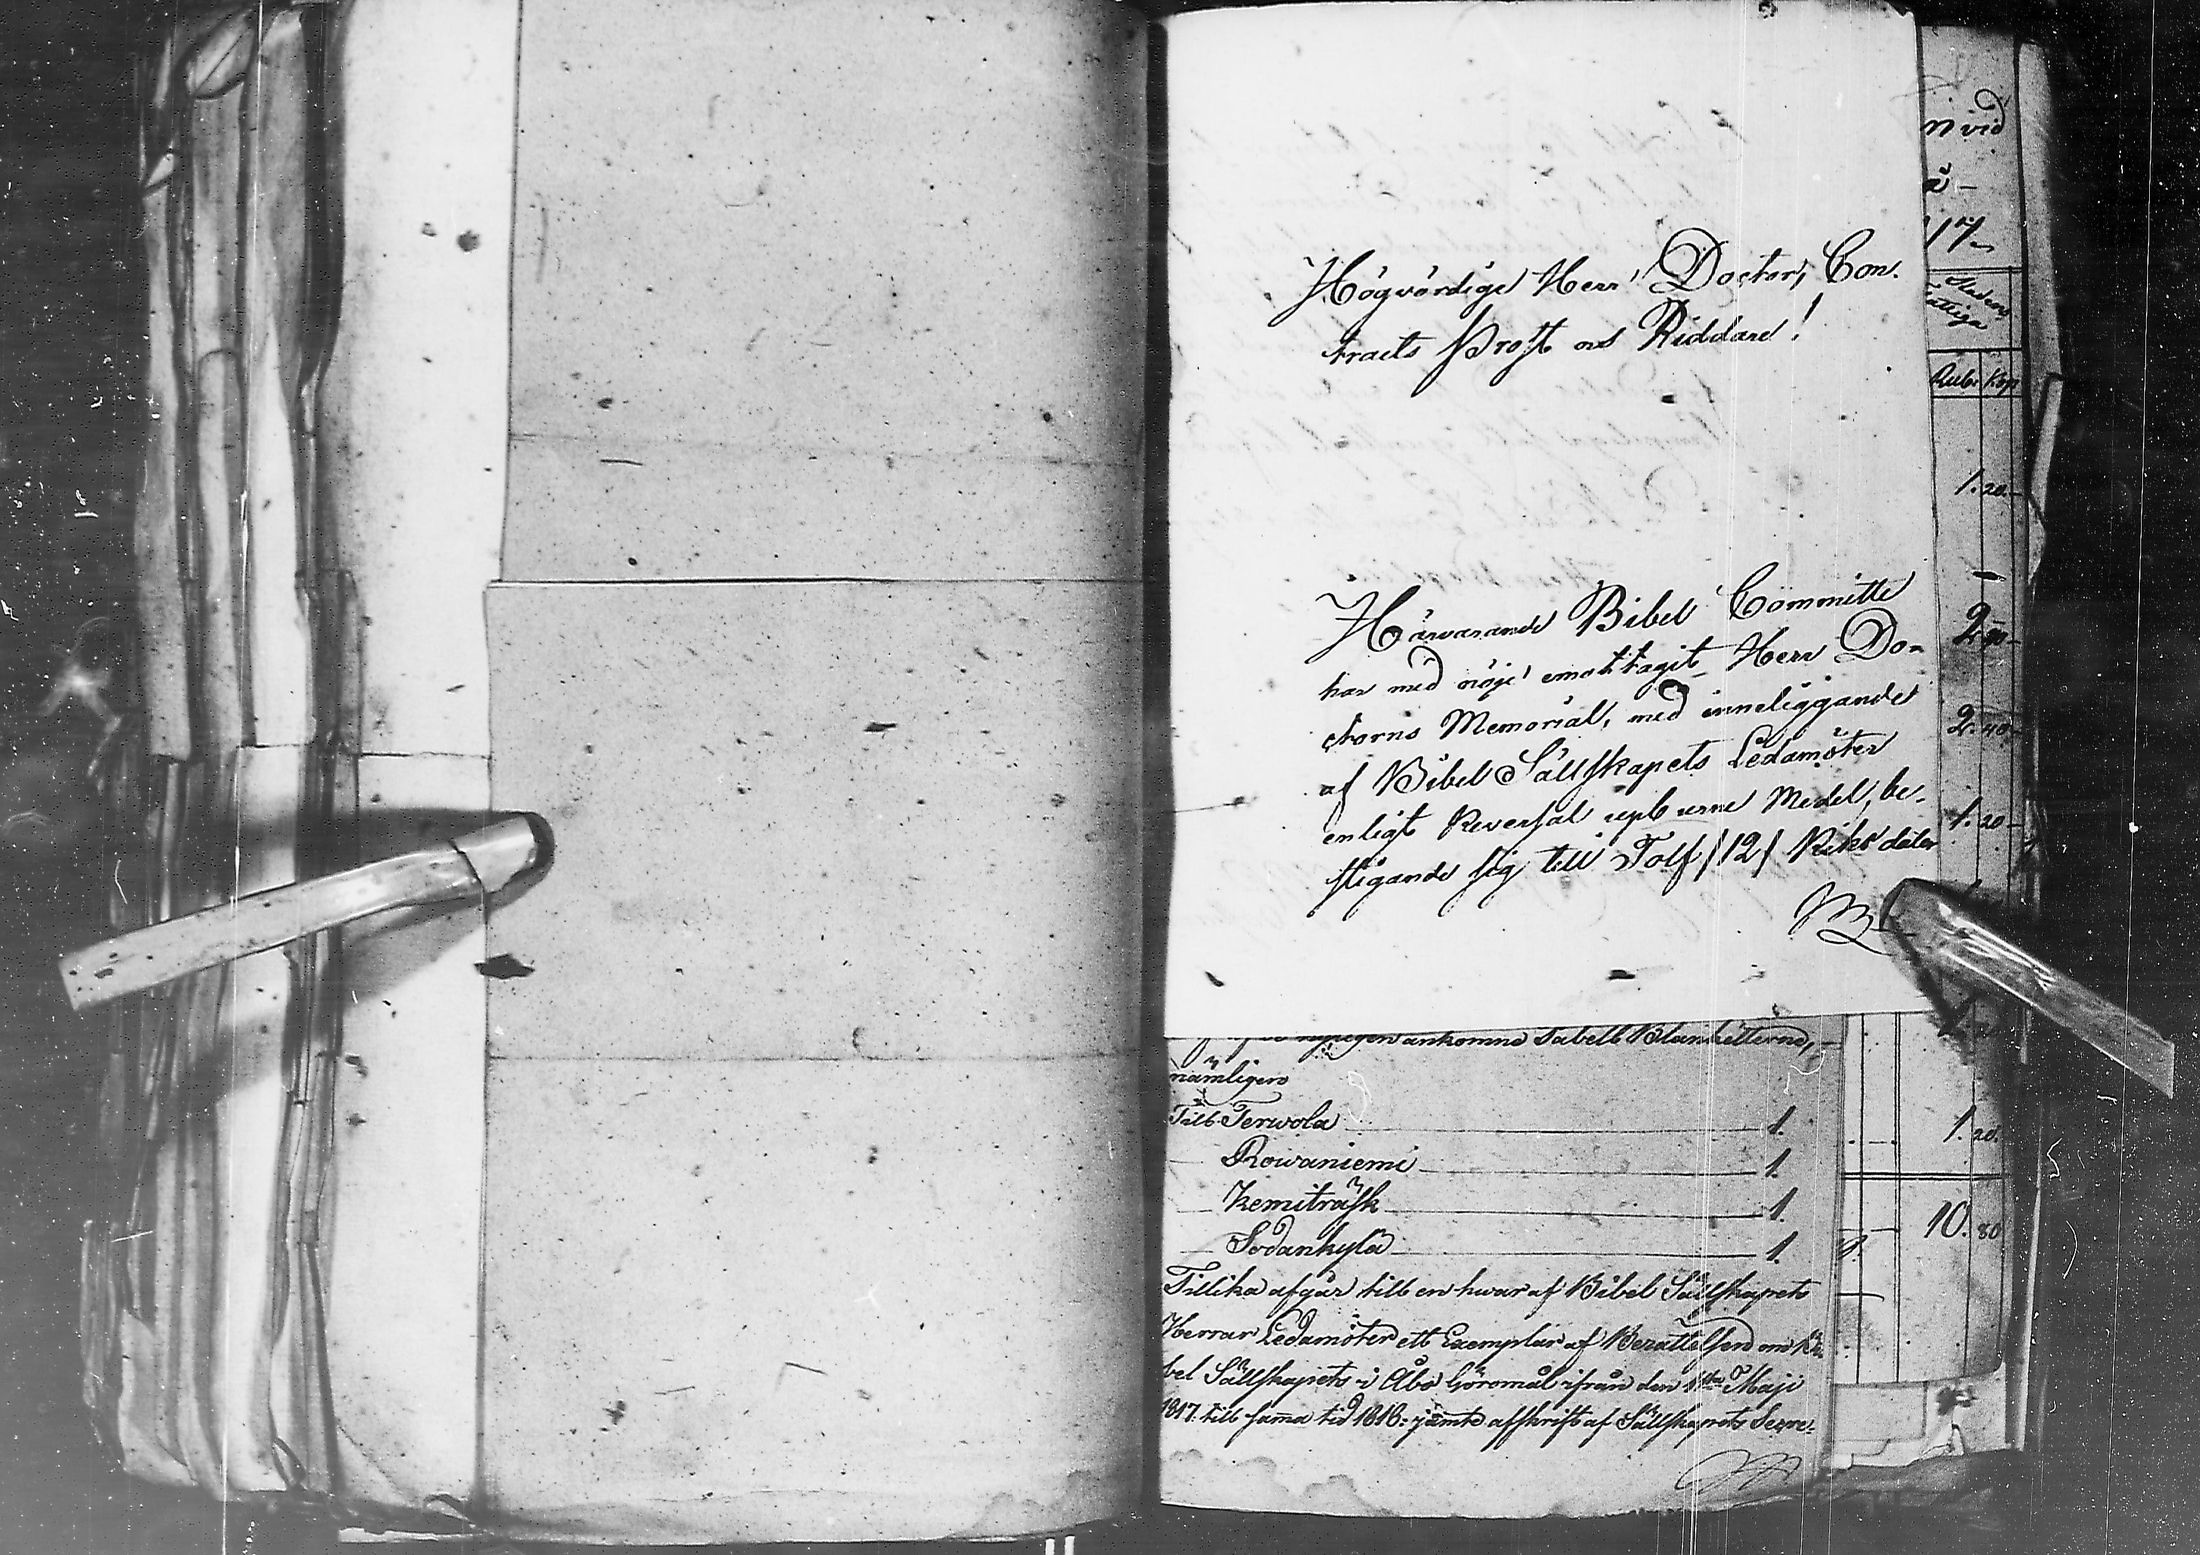 Högvördige Herr Doctor, Con-
tracts Prost och Riddare!
Härvarande Bibel Committe
har med nöje emottagit Herr Do-
ctorns Memorial, med inneliggande
af Bibel Sällskapets Ledamöter
enligt Reversal upburne Medel, be-
stigande sig till Tolf /12/ Riksdaler
nyligen ankomne Tabell Blanketterne,
nämligen
Till Terwola 1.
Rowaniemi 1.
Kemiträsk 1.
Sodankylä 1.
Tillika afgår till en hwar af Bibel Sällskapets
Herrar Ledamöter ett Exemplar af Berättelsen om Bi-
bel Sällskapets i Åbo Göromål ifrån den 1sta Maji
1817. till samma tid 1818: jämte afskrift af Sällskapets Secre-
n vid
17
Stadens
Fattiga
Rub. Kop
1. 20
2. 40
1. 20
1. 20
10. 80